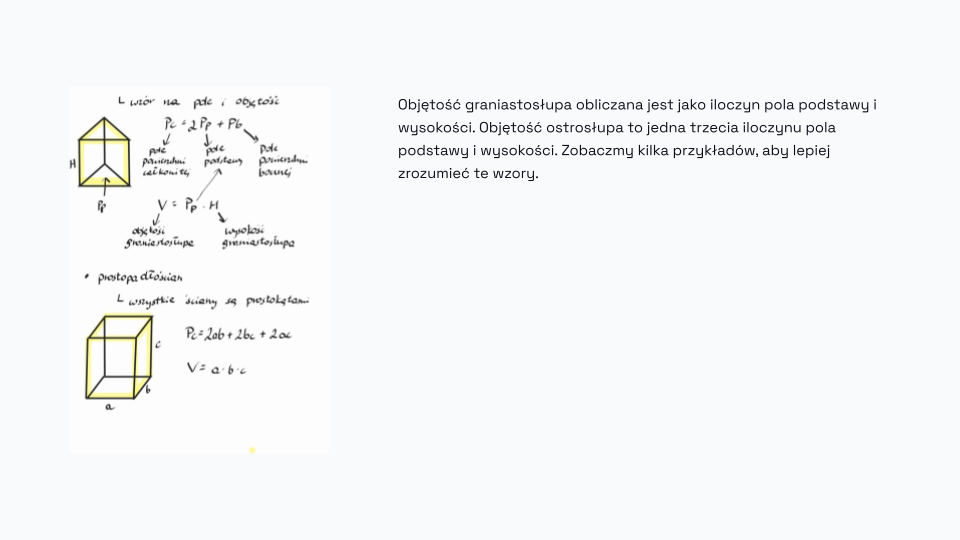 L wzór na pole i objętość
Pc = 2Pp + Pb
pole powierzchni całkowitej
pole podstawy
pole powierzchni bocznej
H
Pp
V = Pp · H
objętość graniastosłupa
wysokość graniastosłupa
• prostopadłościan
L wszystkie ściany są prostokątami
Pc = 2ab + 2bc + 2ac
V = a · b · c
c
b
a
Objętość graniastosłupa obliczana jest jako iloczyn pola podstawy i
wysokości. Objętość ostrosłupa to jedna trzecia iloczynu pola
podstawy i wysokości. Zobaczmy kilka przykładów, aby lepiej
zrozumieć te wzory.